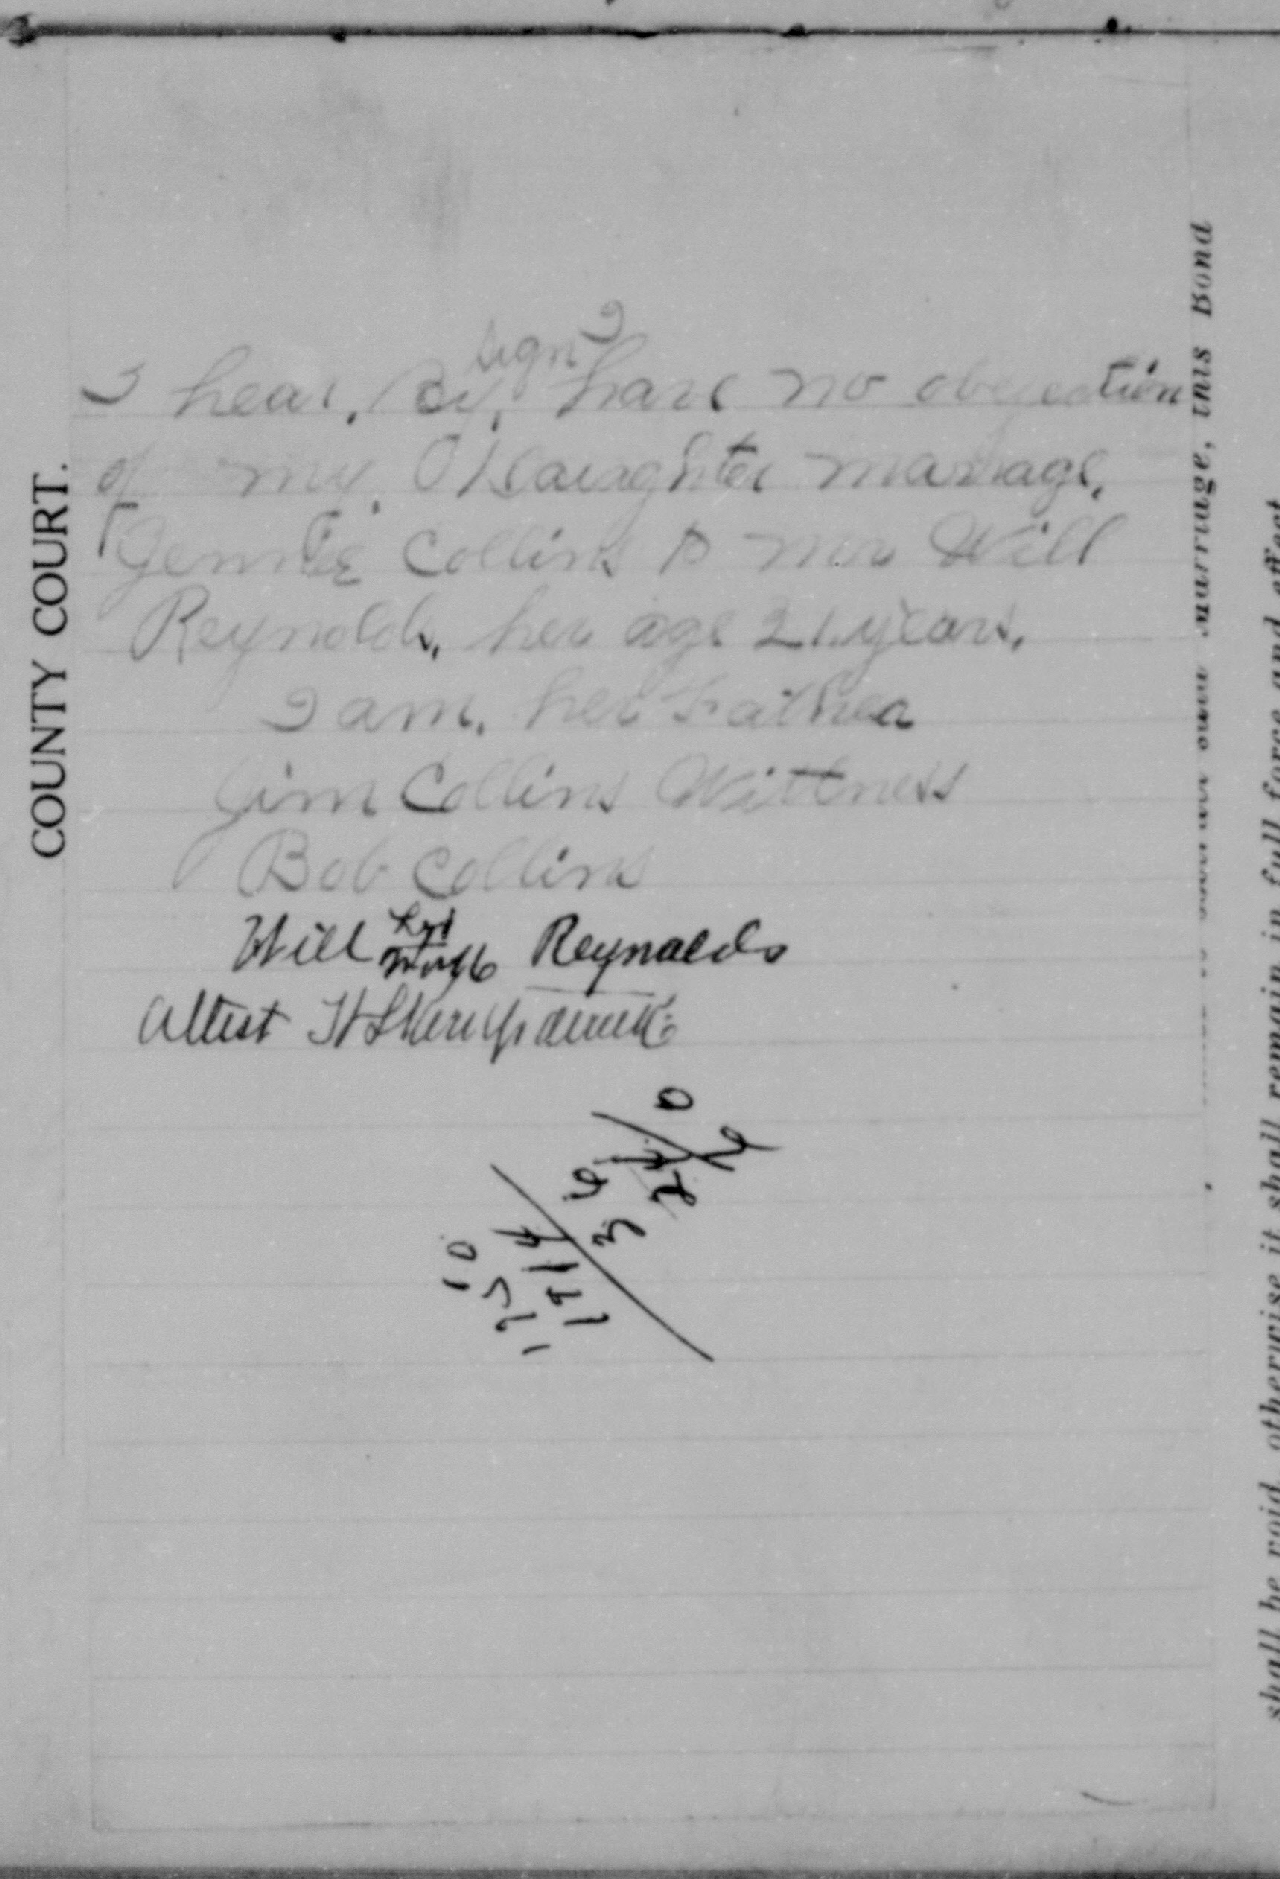 COUNTY COURT.
sign I
I hear, By, have no obejection
of my, Daughter marrage,
Jennie Collins to mr Will
Reynolds, her age 21 years,
I am, her Father
Jim Collins Wittness
Bob Collins
Will his Reynolds
mark
Attest
marriage, this Bond
shall be void, otherwise it shall remain in full force and effect